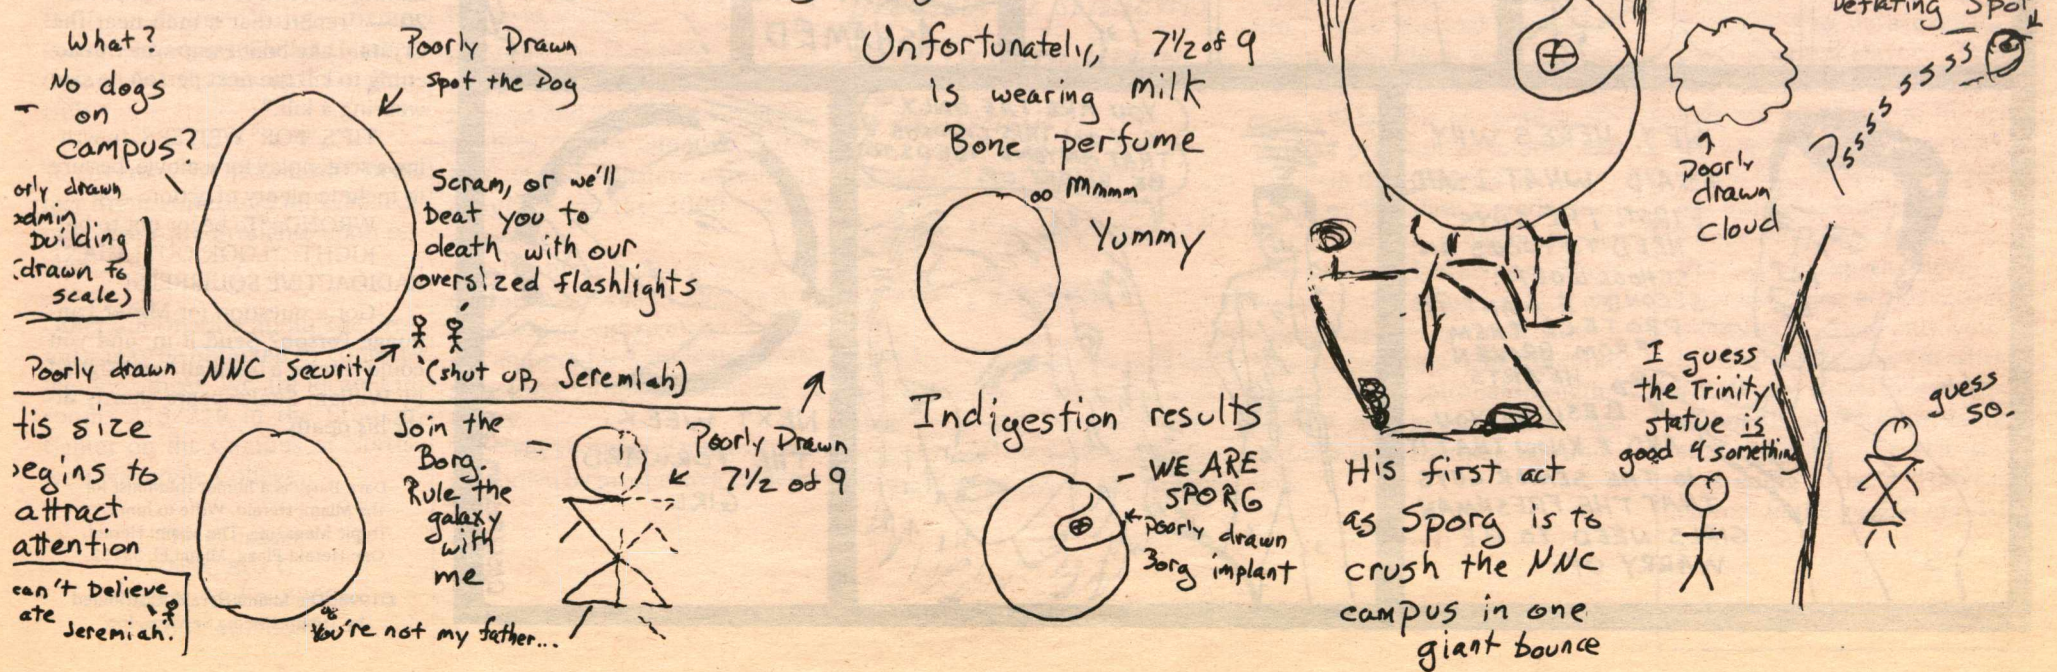 What?
No dogs
on
campus?
Poorly Drawn
Spot the Dog
drawn
Building
(drawn to
scale)
Scram, or we'll
beat you to
death with our
oversized flashlights
Poorly drawn NNC Security
(shut up, Jeremiah)
size
to
attract
attention
can't believe
ate
Jeremiah!
Join the
Borg.
Rule the
galaxy
with
me
Poorly Drawn
7½ of 9
You're not my father...
Unfortunately, 7½ of 9
is wearing Milk
Bone perfume
Mmmm
Yummy
Indigestion results
WE ARE
SPORG
Poorly drawn
Borg implant
His first act
as Sporg is to
crush the NNC
campus in one
giant bounce
Deflating Spor
Psssssssss
Poorly
drawn
cloud
I guess
the Trinity
statue is
good 4 something
guess
so.